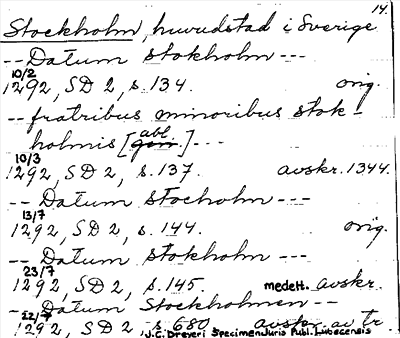 14.
Stockholm, huvudstad i Sverige
-- Datum stokholm ---
10/2
1292, SD 2, s. 134. orig.
-- fratribus minoribus stok-
holmis [gen. abl.] ---
10/3
1292, SD 2, s. 137. avskr. 1344.
-- Datum stocholm ---
13/7
1292, SD 2, s. 144. orig.
-- Datum stokholm ---
23/7
1292, SD 2, s. 145. medelt. avskr.
- Datum Stockholmen --
22/7
1292, SD 2 s 680 avskr. av tr.
J.C. Dreyeri Specimen Juris Publ. Lubecensis